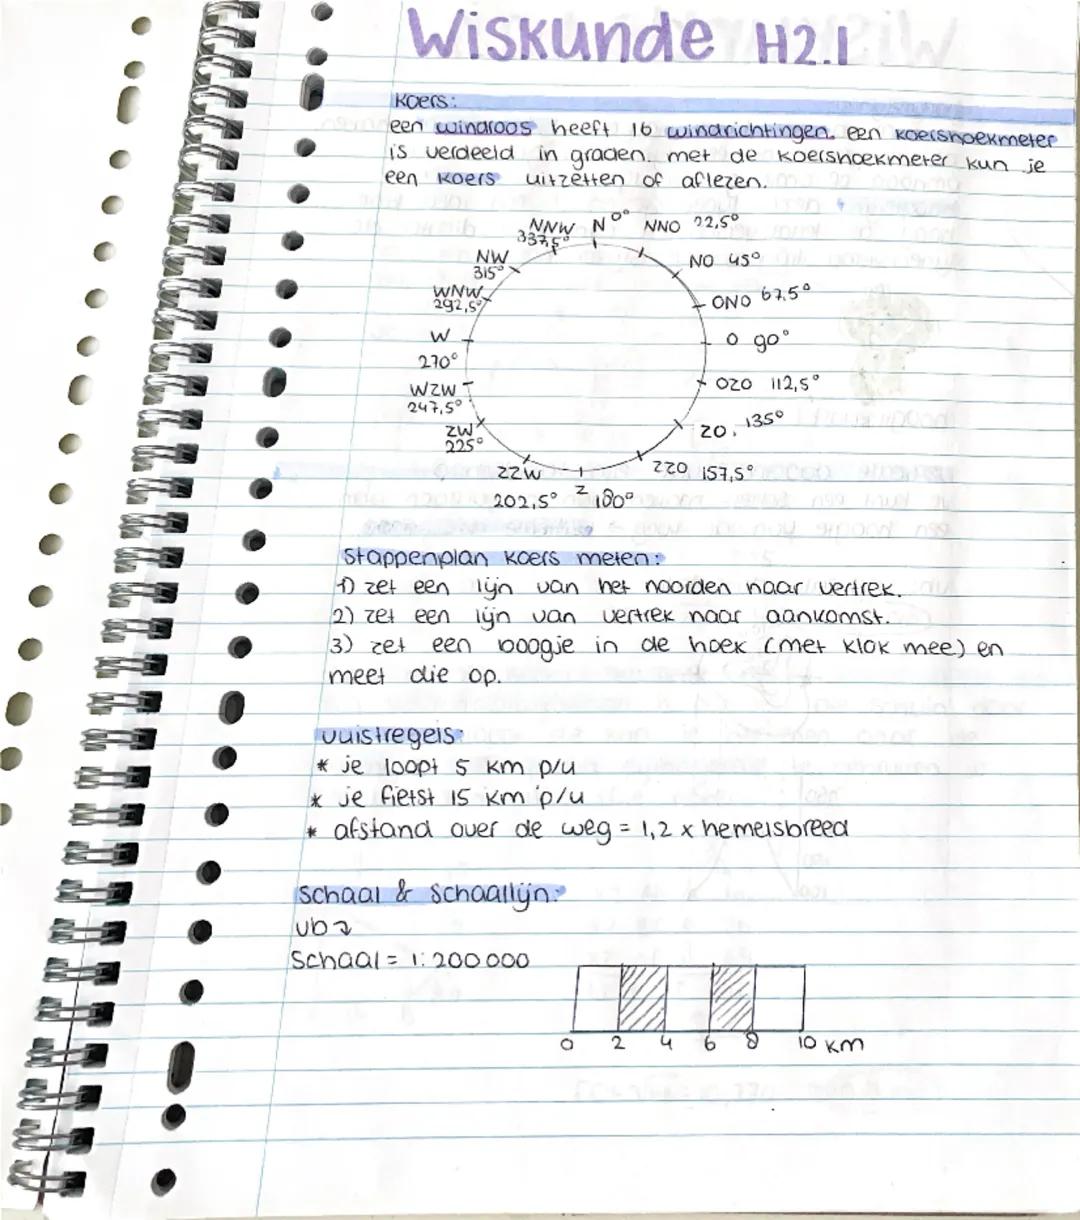 Wiskunde H2.1
Koers:
een windroos heeft 16 windrichtingen. een koershoekmeter
is verdeeld in graden. met de koershoekmeter kun je
een koers uitzetten of aflezen.
N 0°
NNO 22,5°
NO 45°
ONO 67,5°
O 90°
OZO 112,5°
ZO. 135°
ZZO 157,5°
Z 180°
ZZW
202,5°
ZW
225°
WZW
247,5°
W
270°
WNW
292,5°
NW
315°
NNW
337,5°
Stappenplan koers meten:
1) zet een lijn van het noorden naar vertrek.
2) zet een lijn van vertrek naar aankomst.
3) zet een boogje in de hoek (met klok mee) en
meet die op.
vuistregels
* je loopt 5 km p/u
* je fietst 15 km p/u
* afstand over de weg = 1,2 x hemelsbreed
Schaal & Schaallijn:
vb
Schaal = 1:200 000
0 2 4 6 8 10 km